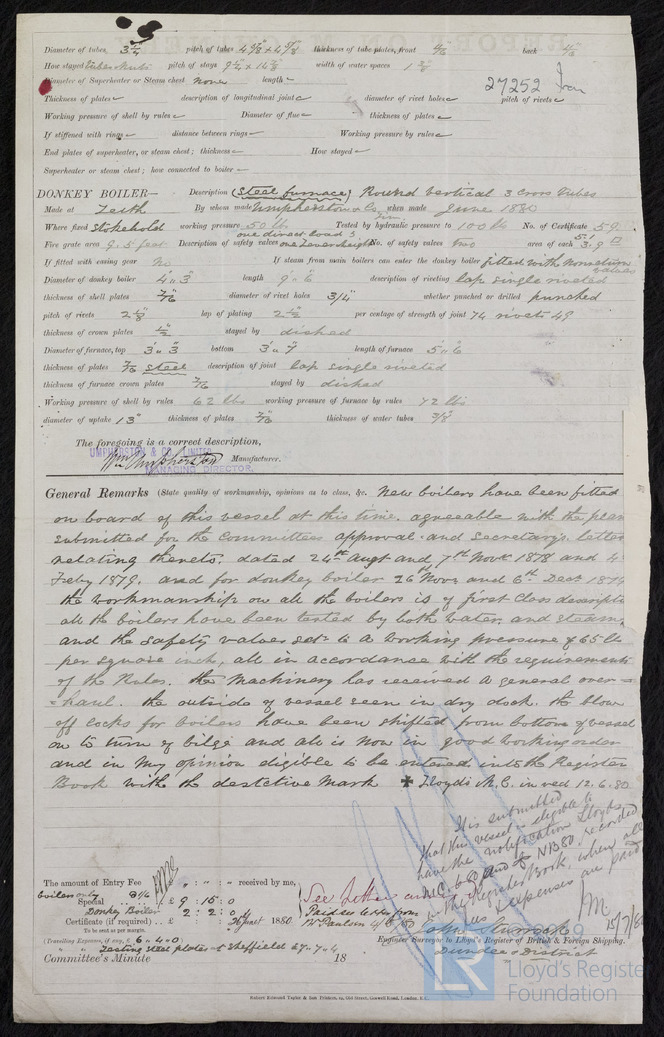 Diameter of tubes, 3 1/4 pitch of tubes 4 3/8 x 4 7/8 thickness of tube plates, front back
How stayed pitch of stays width of water spaces
Diameter of Superheater or Steam chest none length
27252 Iron
Thickness of plates description of longitudinal joint diameter of rivet holes pitch of rivets
Working pressure of shell by rules Diameter of flue thickness of plates
If stiffened with rings distance between rings Working pressure by rules
End plates of superheater, or steam chest; thickness How stayed
Superheater or steam chest; how connected to boiler
DONKEY BOILER— Description (Steel furnace) Round Vertical 3 Cross Tubes
Made at Leith By whom made Umpherston & Co. when made June 1880
Where fixed Stokehold working pressure 50 lbs Tested by hydraulic pressure to 100 lbs No. of Certificate 59
one direct load &
Fire grate area 9.5 feet Description of safety valves one Lever Weight No. of safety valves two area of each
If fitted with easing gear no If steam from main boilers can enter the donkey boiler fitted with nonreturn valves
Diameter of donkey boiler 4' 3" length 9' 6" description of riveting lap single riveted
thickness of shell plates 7/16 diameter of rivet holes 3/4" whether punched or drilled punched
pitch of rivets lap of plating 2 1/2 per centage of strength of joint 74 rivets 49
thickness of crown plates 1/2 stayed by dished
Diameter of furnace, top 3' 3" bottom 3' 7" length of furnace 5' 6
thickness of plates steel description of joint lap single riveted
thickness of furnace crown plates 7/16 stayed by dished
Working pressure of shell by rules 62 lbs working pressure of furnace by rules 72 lbs
diameter of uptake 13" thickness of plates thickness of water tubes 3/8
The foregoing is a correct description,
UMPHERSTON & CO. LIMITED
Wm Umpherston Manufacturer.
MANAGING DIRECTOR.
General Remarks (State quality of workmanship, opinions as to class, &c. New boilers have been fitted
on board of this vessel at this time. agreeable with the plan
submitted for the Committees approval. and Secretary's letter
relating thereto, dated 24th Augt and 7th Novr 1878 and 4
Feby 1879. and for donkey boiler 26th Novr and 6th Decr 1879
the workmanship on all the boilers is of first Class descripti
all the boilers have been tested by both water, and steam,
and the safety valves set to a working pressure of 65 lbs
per square inch, all in accordance with the requirements
of the Rules. the Machinery has received a general over=
=haul. the outside of vessel seen in dry dock. the blow
off Cocks for boilers have been shifted from bottom of vessel
on to turn of bilge and all is now in good working order
and in my opinion eligible to be entered into the Register
Book with the destective Mark ✠ Lloyds M.C. in red 12.6.80
It is submitted
that this vessel is eligible to
have the notification Lloyds
M.C. 6.80 and N.B 80 recorded
in the Register Book, when all
expenses are paid
15/7/80
The amount of Entry Fee £ : : received by me,
boilers only
Special £ 9 : 15 : 0
Donkey Boiler 2 : 2 : 0
Certificate (if required) £ : : 1880
To be sent as per margin.
See letter
(Travelling Expenses, if any, £ 6 . 4 . 0)
John Sturrock
Engineer Surveyor to Lloyd's Register of British & Foreign Shipping.
" " Testing steel plates at Sheffield £7. 7. 4
Dundee District
Committee's Minute 18
LR Lloyd's Register
Foundation
Robert Edmund Taylor & Son Printers, 19, Old Street, Goswell Road, London, E.C.